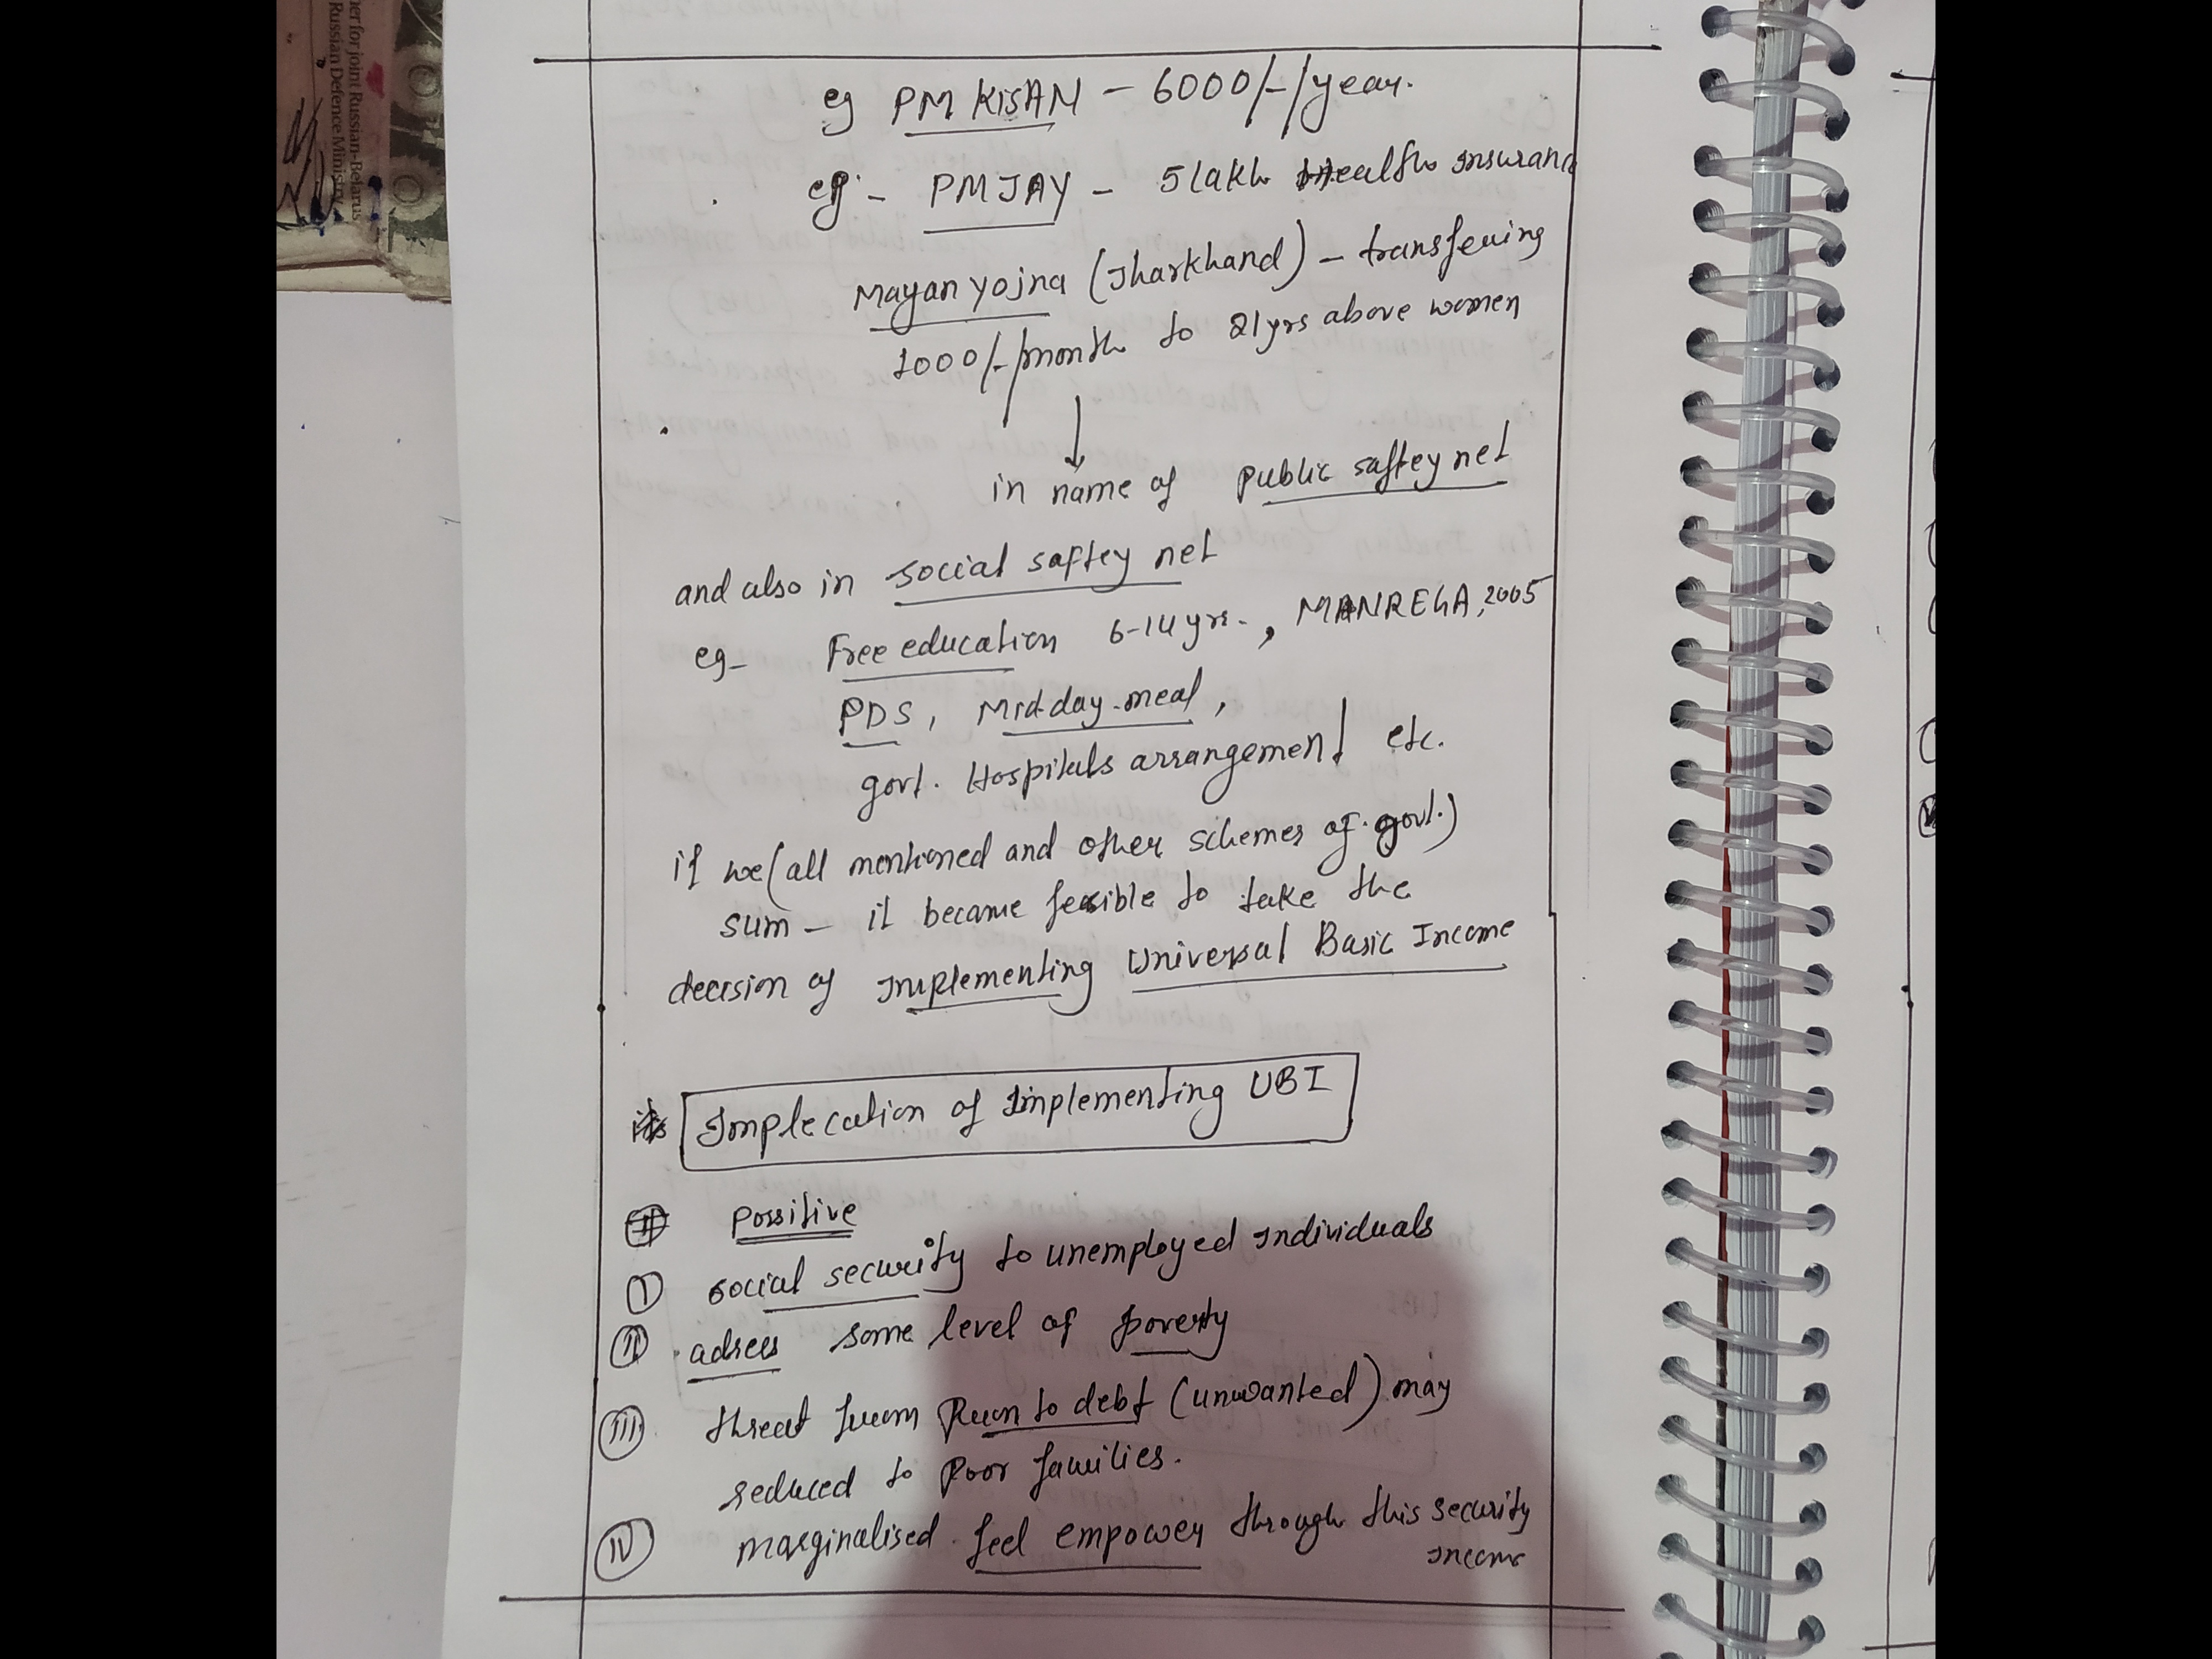 her for joint Russian-Belarus
Russian Defence Ministry
eg PM KISAN - 6000/-/year.
eg - PMJAY - 5 lakh Health insuranc
Mayan Yojna (Jharkhand) - transfering
1000/-/month to 21yrs above women
in name of Public saftey net
and also in social saftey net
eg- Free education 6-14 yrs., MANREGA, 2005
PDS, Mid-day-meal,
govt. Hospitals arrangement etc.
if we (all mentioned and other schemes of govt.)
sum - it became fesible to take the
decision of implementing Universal Basic Income
Implecation of Implementing UBI
Possitive
I social security to unemployed individuals
II adress some level of poverty
III threat from Run to debt (unwanted) may
reduced to Poor families.
IV marginalised feel empower through this security
income